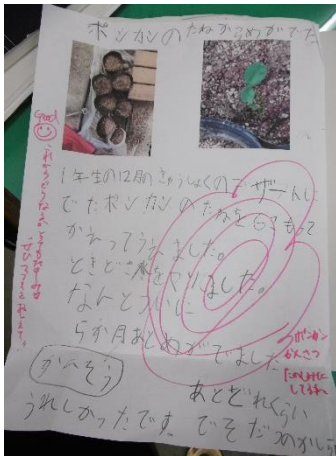 ポンカンのたねからめがでた
good
1年生の12月のきゅうしょくのデザートに
でたポンカンのたねを6こもって
かえってうえました。
ときどき水をやりました。
なんとついに
5か月あとめがでました
ポンカン
かんさつ
たのしみに
してるね
かんそう
あとどれくらい
うれしかったです でそだつのかしら